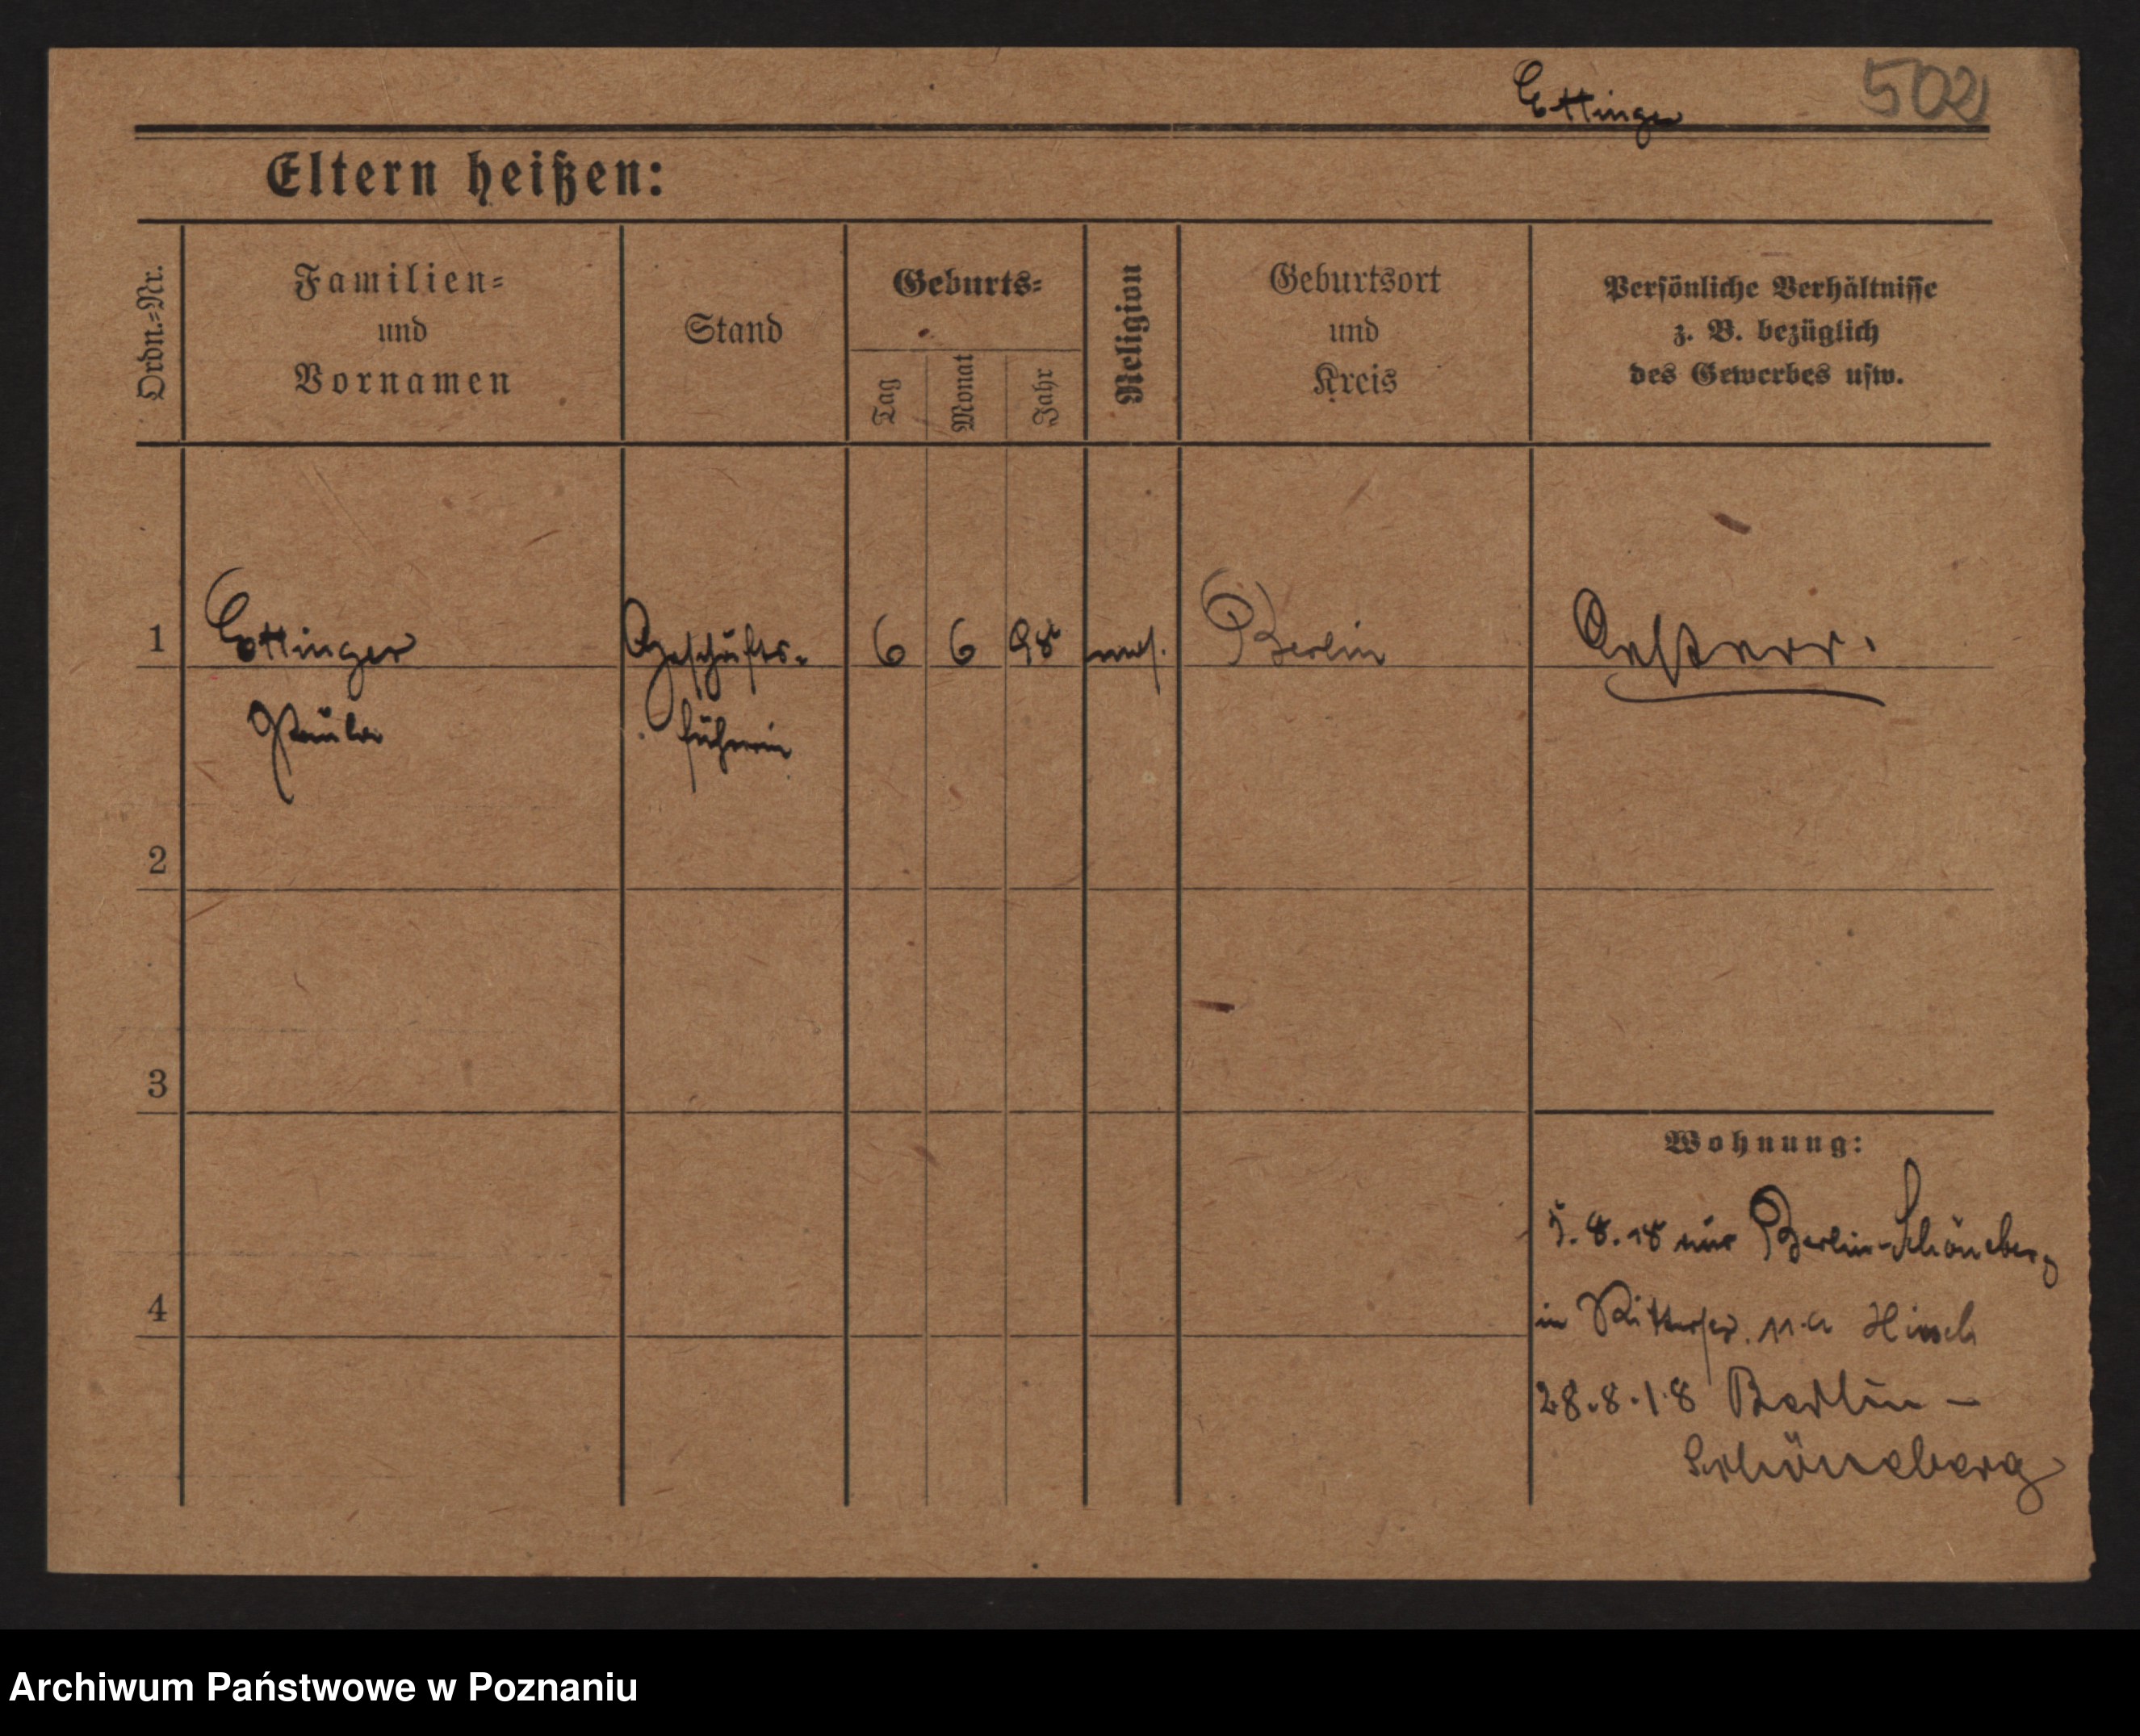 Ettinger 502
Eltern heißen:
Ordn.=Nr.
Familien=
und
Vornamen
Stand
Geburts=
Tag
Monat
Jahr
Religion
Geburtsort
und
Kreis
Persönliche Verhältnisse
z. B. bezüglich
des Gewerbes usw.
1 Ettinger Geschäfts- 6 6 98 mos. Berlin Oesterr.
Paula führerin
2
3
Wohnung:
5.8.18 aus Berlin-Schöneberg
4
in Ritterstr. 11a Hirsch
28.8.18 Berlin –
Schöneberg
Archiwum Państwowe w Poznaniu